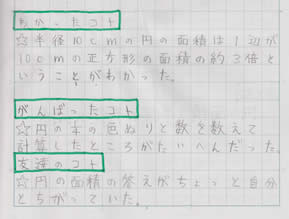 わかったコト
☆半径10cmの円の面積は1辺が
10cmの正方形の面積の約3倍と
いうことがわかった。
がんばったコト
☆円の本の色ぬりと数を数えて
計算したところがたいへんだった。
友達のコト
☆円の面積の答えがちょっと自分
とちがっていた。